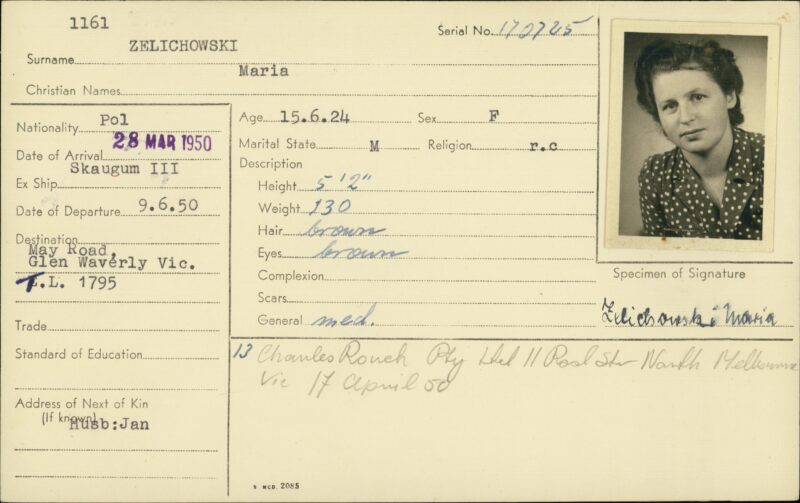 1161
Serial No. 170725
ZELICHOWSKI
Surname
Maria
Christian Names
Nationality Pol
28 MAR 1950
Date of Arrival
Skaugum III
Ex Ship
Date of Departure 9.6.50
Destination
May Road,
Glen Waverly Vic.
T.L. 1795
Trade
Standard of Education
Address of Next of Kin
(If known)
Husb:Jan
Age 15.6.24 Sex F
Marital State M Religion r.c
Description
Height 5'2"
Weight 130
Hair brown
Eyes brown
Complexion
Scars
General med.
Specimen of Signature
Zelichowski Maria
13 Charles Pty Ltd 11 Str North Melbourne
Vic 17 April 50
MCD. 2085